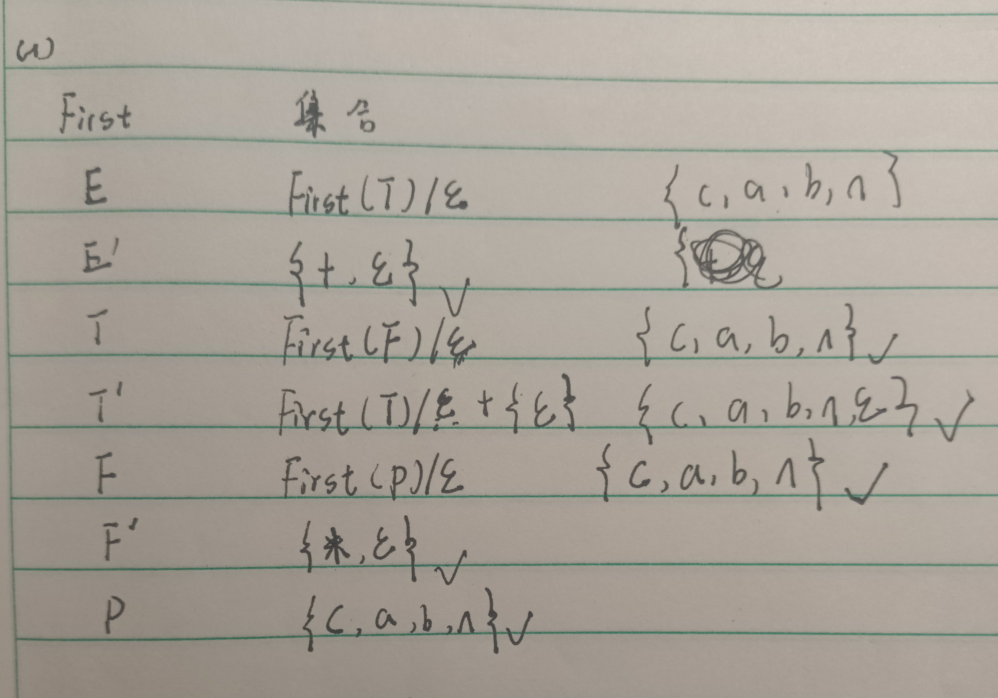 (1)
First 集合
E First(T)/ε {c, a, b, ∧}
E' {+, ε} ✓ {
T First(F)/ε {c, a, b, ∧} ✓
T' First(T)/ε + {ε} {c, a, b, ∧, ε} ✓
F First(P)/ε {c, a, b, ∧} ✓
F' {*, ε} ✓
P {c, a, b, ∧} ✓